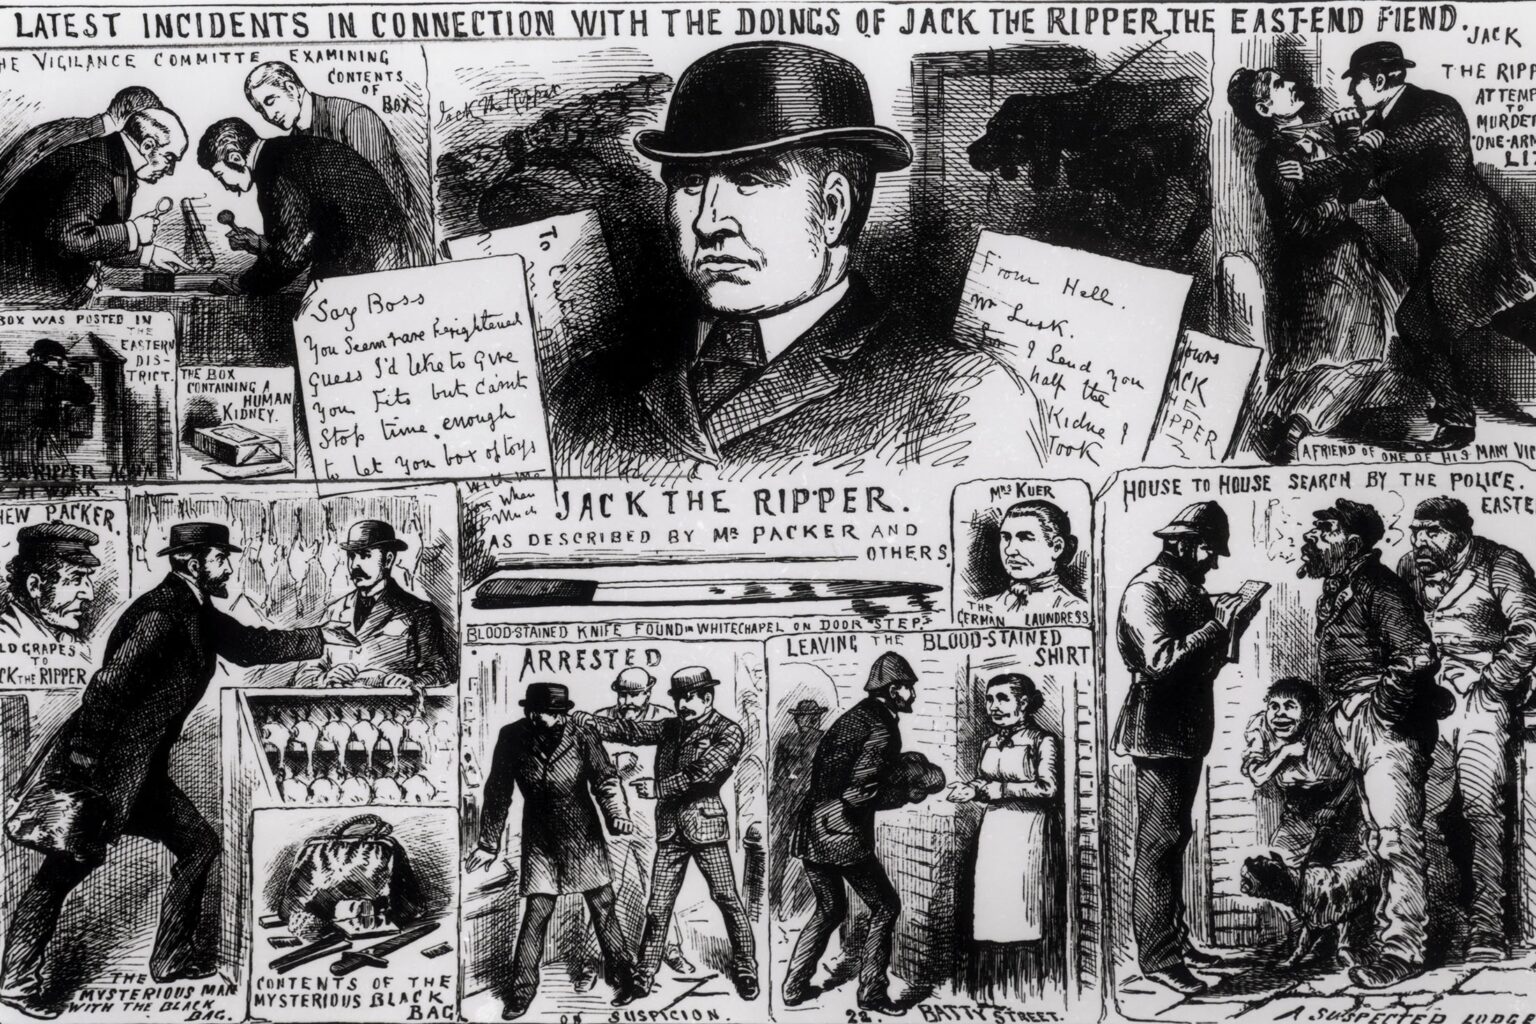 LATEST INCIDENTS IN CONNECTION WITH THE DOINGS OF JACK THE RIPPER, THE EAST-END FIEND.
HE VIGILANCE COMMITTE EXAMINING
CONTENTS
OF
BOX
BOX WAS POSTED IN
THE
EASTERN
DIS-
TRICT.
THE BOX
CONTAINING A
HUMAN
KIDNEY.
RIPPER AGAIN
AT WORK
Jack the Ripper
To
Say Boss
You Seem rare frightened
guess I'd like to give
you fits but can't
stop time enough
to let you box of toys
with me
when
From Hell.
Mr Lusk.
Sor I Send you
half the
Kidne I
Took
Yours
ACK
HE
PPER
JACK
THE RIPP
ATTEMP
TO
MURDER
"ONE-ARM
LI
A FRIEND OF ONE OF HIS MANY VIC
JACK THE RIPPER.
AS DESCRIBED BY Mr PACKER AND
OTHERS
BLOOD-STAINED KNIFE FOUND IN WHITECHAPEL ON DOOR STEP
Mrs KUER
THE
GERMAN LAUNDRESS
HOUSE TO HOUSE SEARCH BY THE POLICE.
EASTE
A SUSPECTED LODGE
HEW PACKER.
LD GRAPES
TO
CK THE RIPPER
THE
MYSTERIOUS MAN
WITH THE BLACK
BAG.
CONTENTS OF THE
MYSTERIOUS BLACK
BAG
ARRESTED
ON SUSPICION.
LEAVING THE BLOOD-STAINED
SHIRT
22. BATTY STREET.